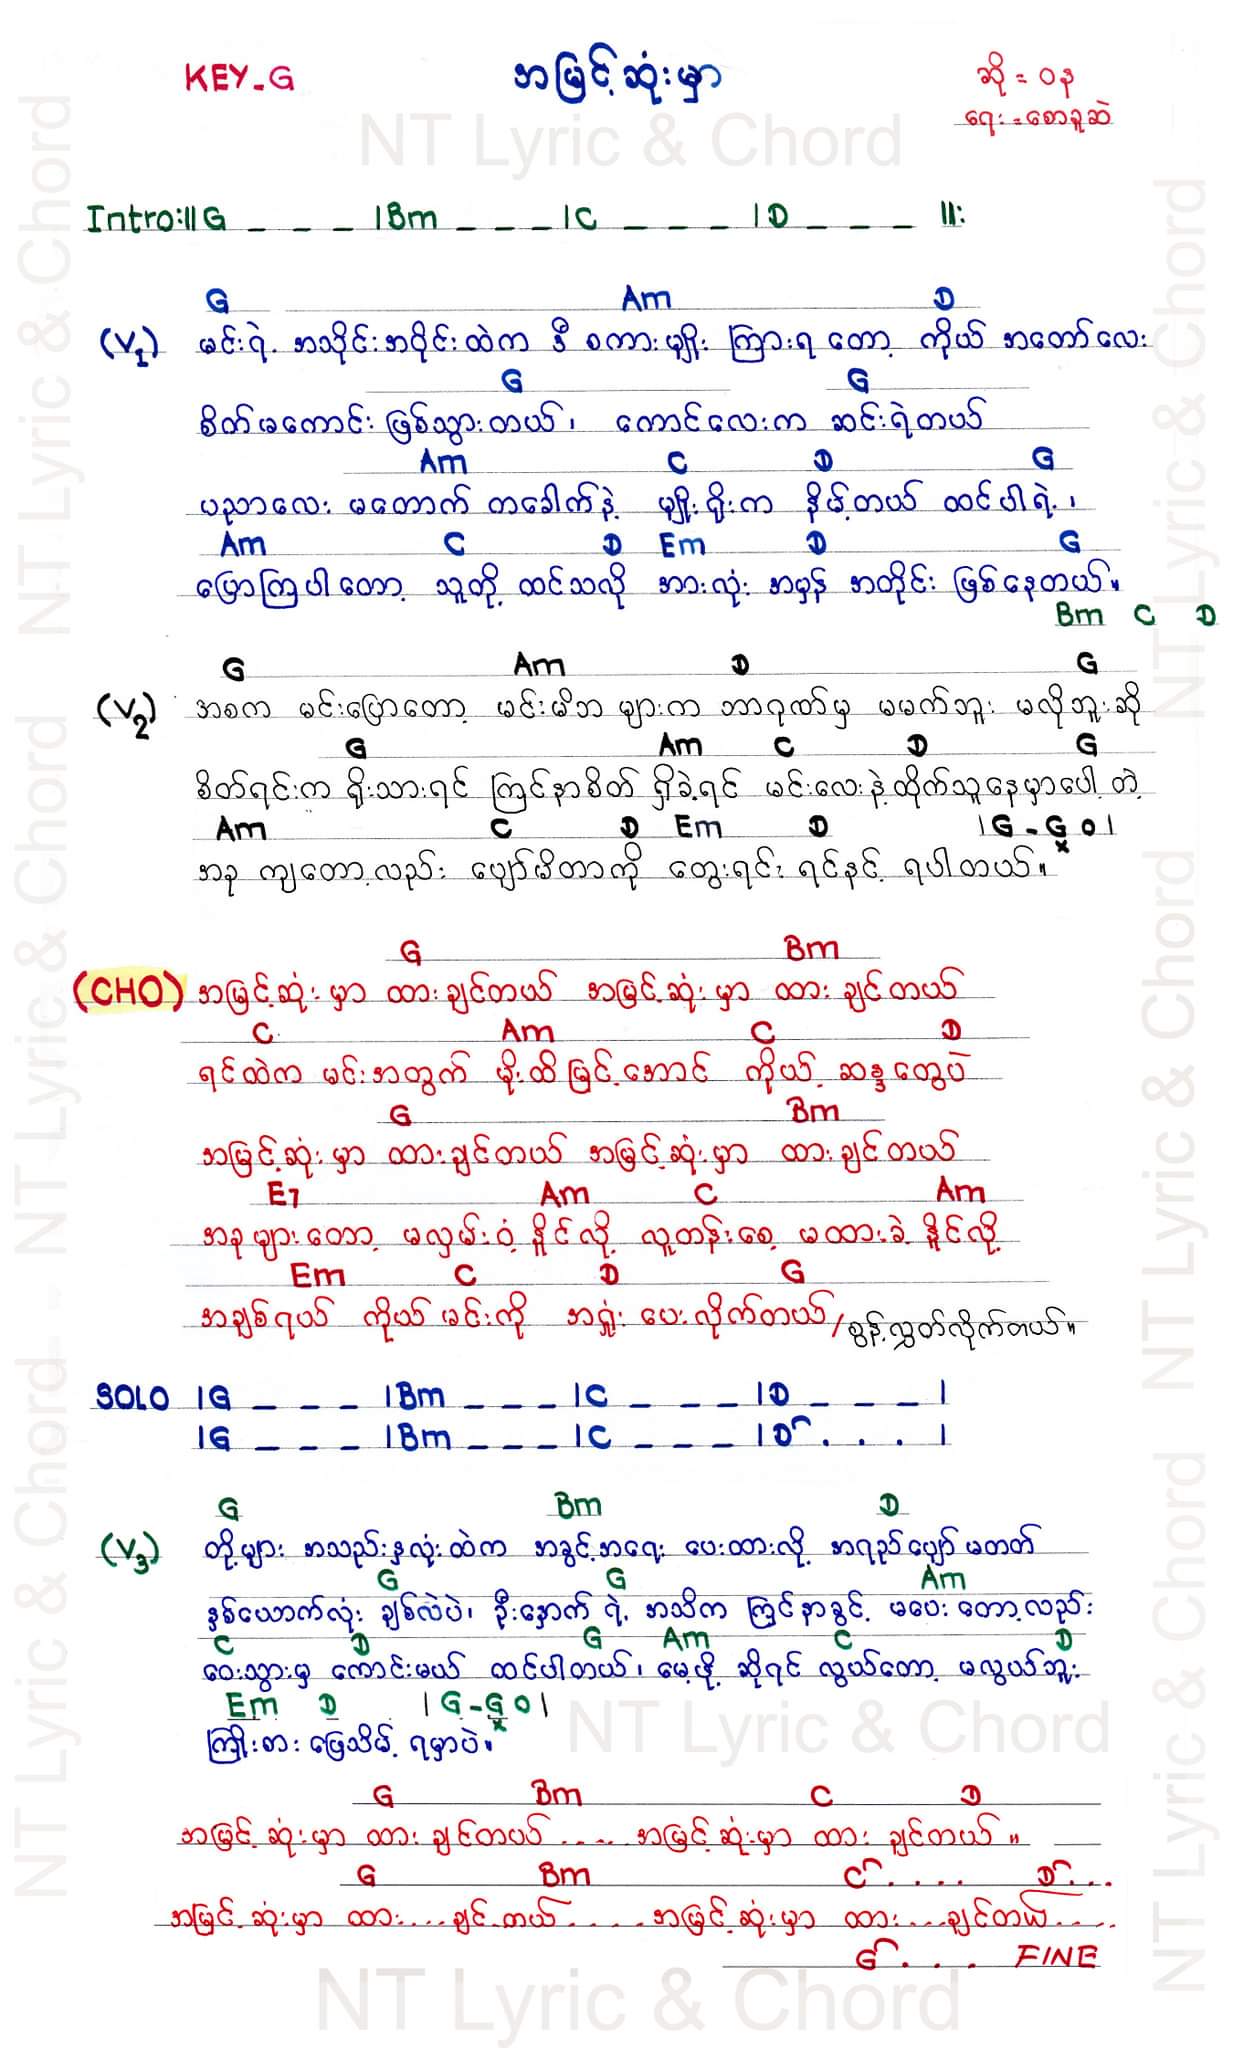 KEY-G
အမြင့်ဆုံးမှာ
ဆို = ဝန
ရေး = စောခူဆဲ
NT Lyric & Chord
Intro:||G _ _ _ |Bm _ _ _ |C _ _ _ |D _ _ _ ||:
G Am D
(V1) မင်းရဲ့ အသိုင်းအဝိုင်းထဲက ဒီ စကားမျိုး ကြားရ တော့ ကိုယ် အတော်လေး
G G
စိတ်မကောင်း ဖြစ်သွားတယ်၊ ကောင်လေးက ဆင်းရဲတယ်
Am C D G
ပညာလေး မတောက် တခေါက်နဲ့ မျိုးရိုးက နိမ့်တယ် ထင်ပါရဲ့၊
Am C D Em D G
ပြောကြပါတော့ သူတို့ ထင်သလို အားလုံး အမှန် အတိုင်း ဖြစ်နေတယ်။
Bm C D
G Am D G
(V2) အစက မင်းပြောတော့ မင်းမိဘ များက ဘာဂုဏ်မှ မမက်ဘူး မလိုဘူးဆို
G Am C D G
စိတ်ရင်းက ရိုးသားရင် ကြင်နာစိတ် ရှိခဲ့ရင် မင်းလေးနဲ့ထိုက်သူနေမှာပေါ့ တဲ့
Am C D Em D |G - G 0|
အခု ကျတော့လည်း ပျော်မိတာကို တွေးရင်း ရင်နင့် ရပါတယ်။
G Bm
(CHO) အမြင့်ဆုံးမှာ ထားချင်တယ် အမြင့်ဆုံးမှာ ထားချင်တယ်
C Am C D
ရင်ထဲက မင်းအတွက် မိုးထိမြင့်အောင် ကိုယ့် ဆန္ဒတွေပဲ
G Bm
အမြင့်ဆုံးမှာ ထားချင်တယ် အမြင့်ဆုံးမှာ ထားချင်တယ်
E7 Am C Am
အခုများတော့ မလှမ်းဝံ့ နိူင်လို့ လူတန်းစေ့ မထားခဲ့ နိူင်လို့
Em C D G
အချစ်ရယ် ကိုယ်မင်းကို အရှုံး ပေးလိုက်တယ်/စွန့်လွှတ်လိုက်တယ်။
SOLO |G _ _ _ |Bm _ _ _ |C _ _ _ |D _ _ _ |
|G _ _ _ |Bm _ _ _ |C _ _ _ |D . . . |
G Bm D
(V3) တို့များ အသည်းနှလုံးထဲက အခွင့်အရေး ပေးထားလို့ အရည်ပျော် မတတ်
G G Am
နှစ်ယောက်လုံး ချစ်လဲပဲ၊ ဦးနှောက် ရဲ့ အသိက ကြင်နာခွင့် မပေးတော့လည်း
C D G Am C D
ဝေးသွားမှ ကောင်းမယ် ထင်ပါတယ်၊ မေ့ဖို့ ဆိုရင် လွယ်တော့ မလွယ်ဘူး
Em D |G - G 0|
ကြိုးစား ဖြေသိမ့် ရမှာပဲ။
NT Lyric & Chord
G Bm C D
အမြင့်ဆုံးမှာ ထားချင်တယ် .... အမြင့်ဆုံးမှာ ထားချင်တယ်။
G Bm C.... D...
အမြင့်ဆုံးမှာ ထား...ချင်တယ်..... အမြင့်ဆုံးမှာ ထား...ချင်တယ်....
G . . . FINE
NT Lyric & Chord